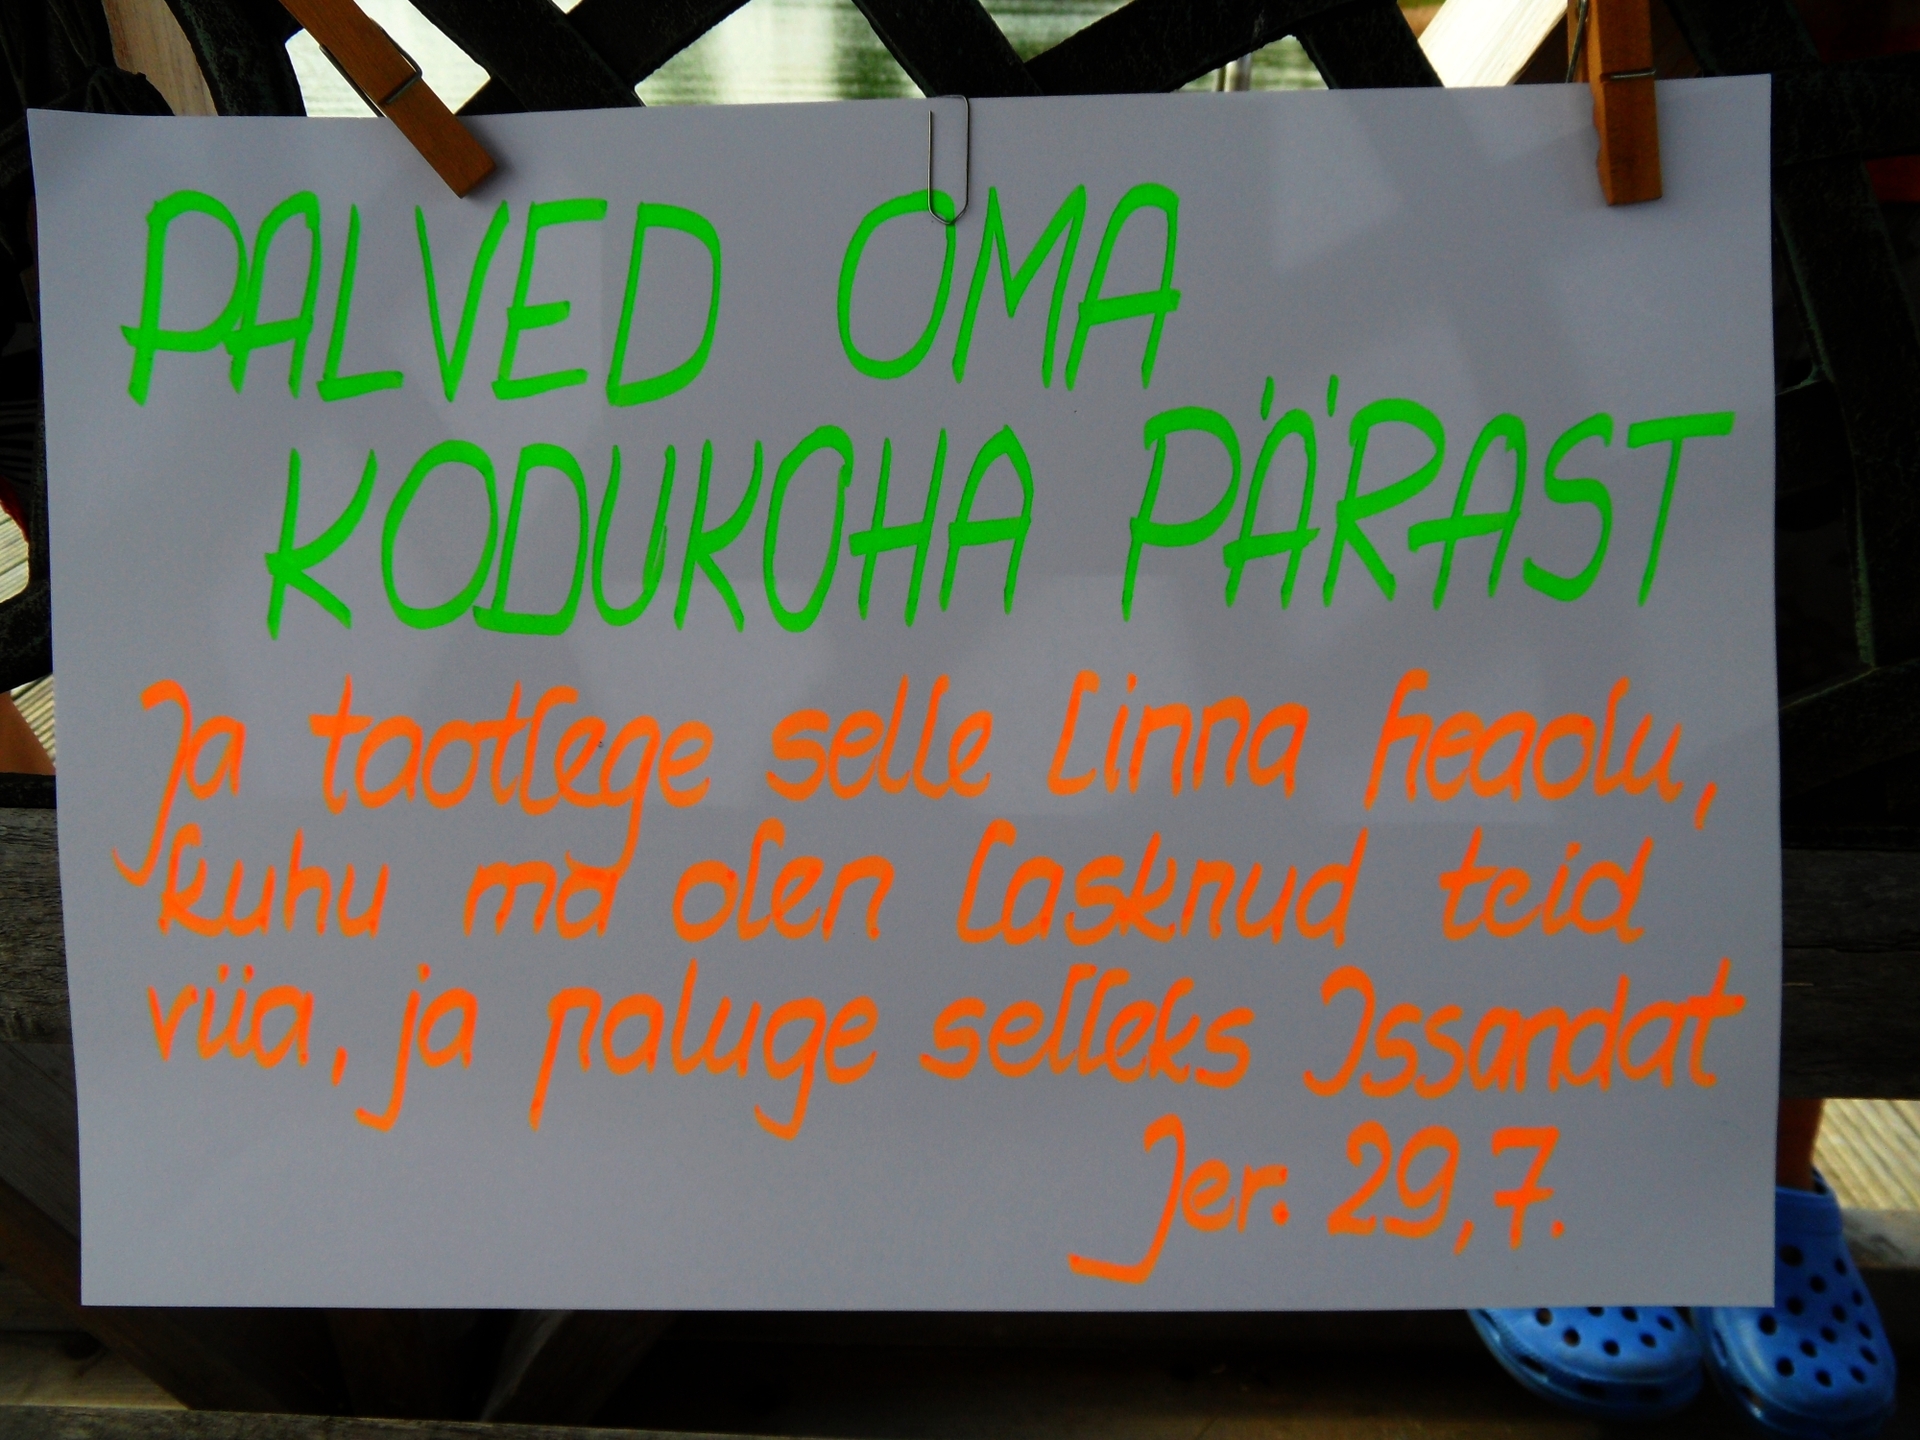 PALVED OMA
KODUKOHA PÄRAST
Ja taotlege selle linna heaolu,
kuhu ma olen lasknud teid
viia, ja paluge selleks Issandat
Jer. 29,7.